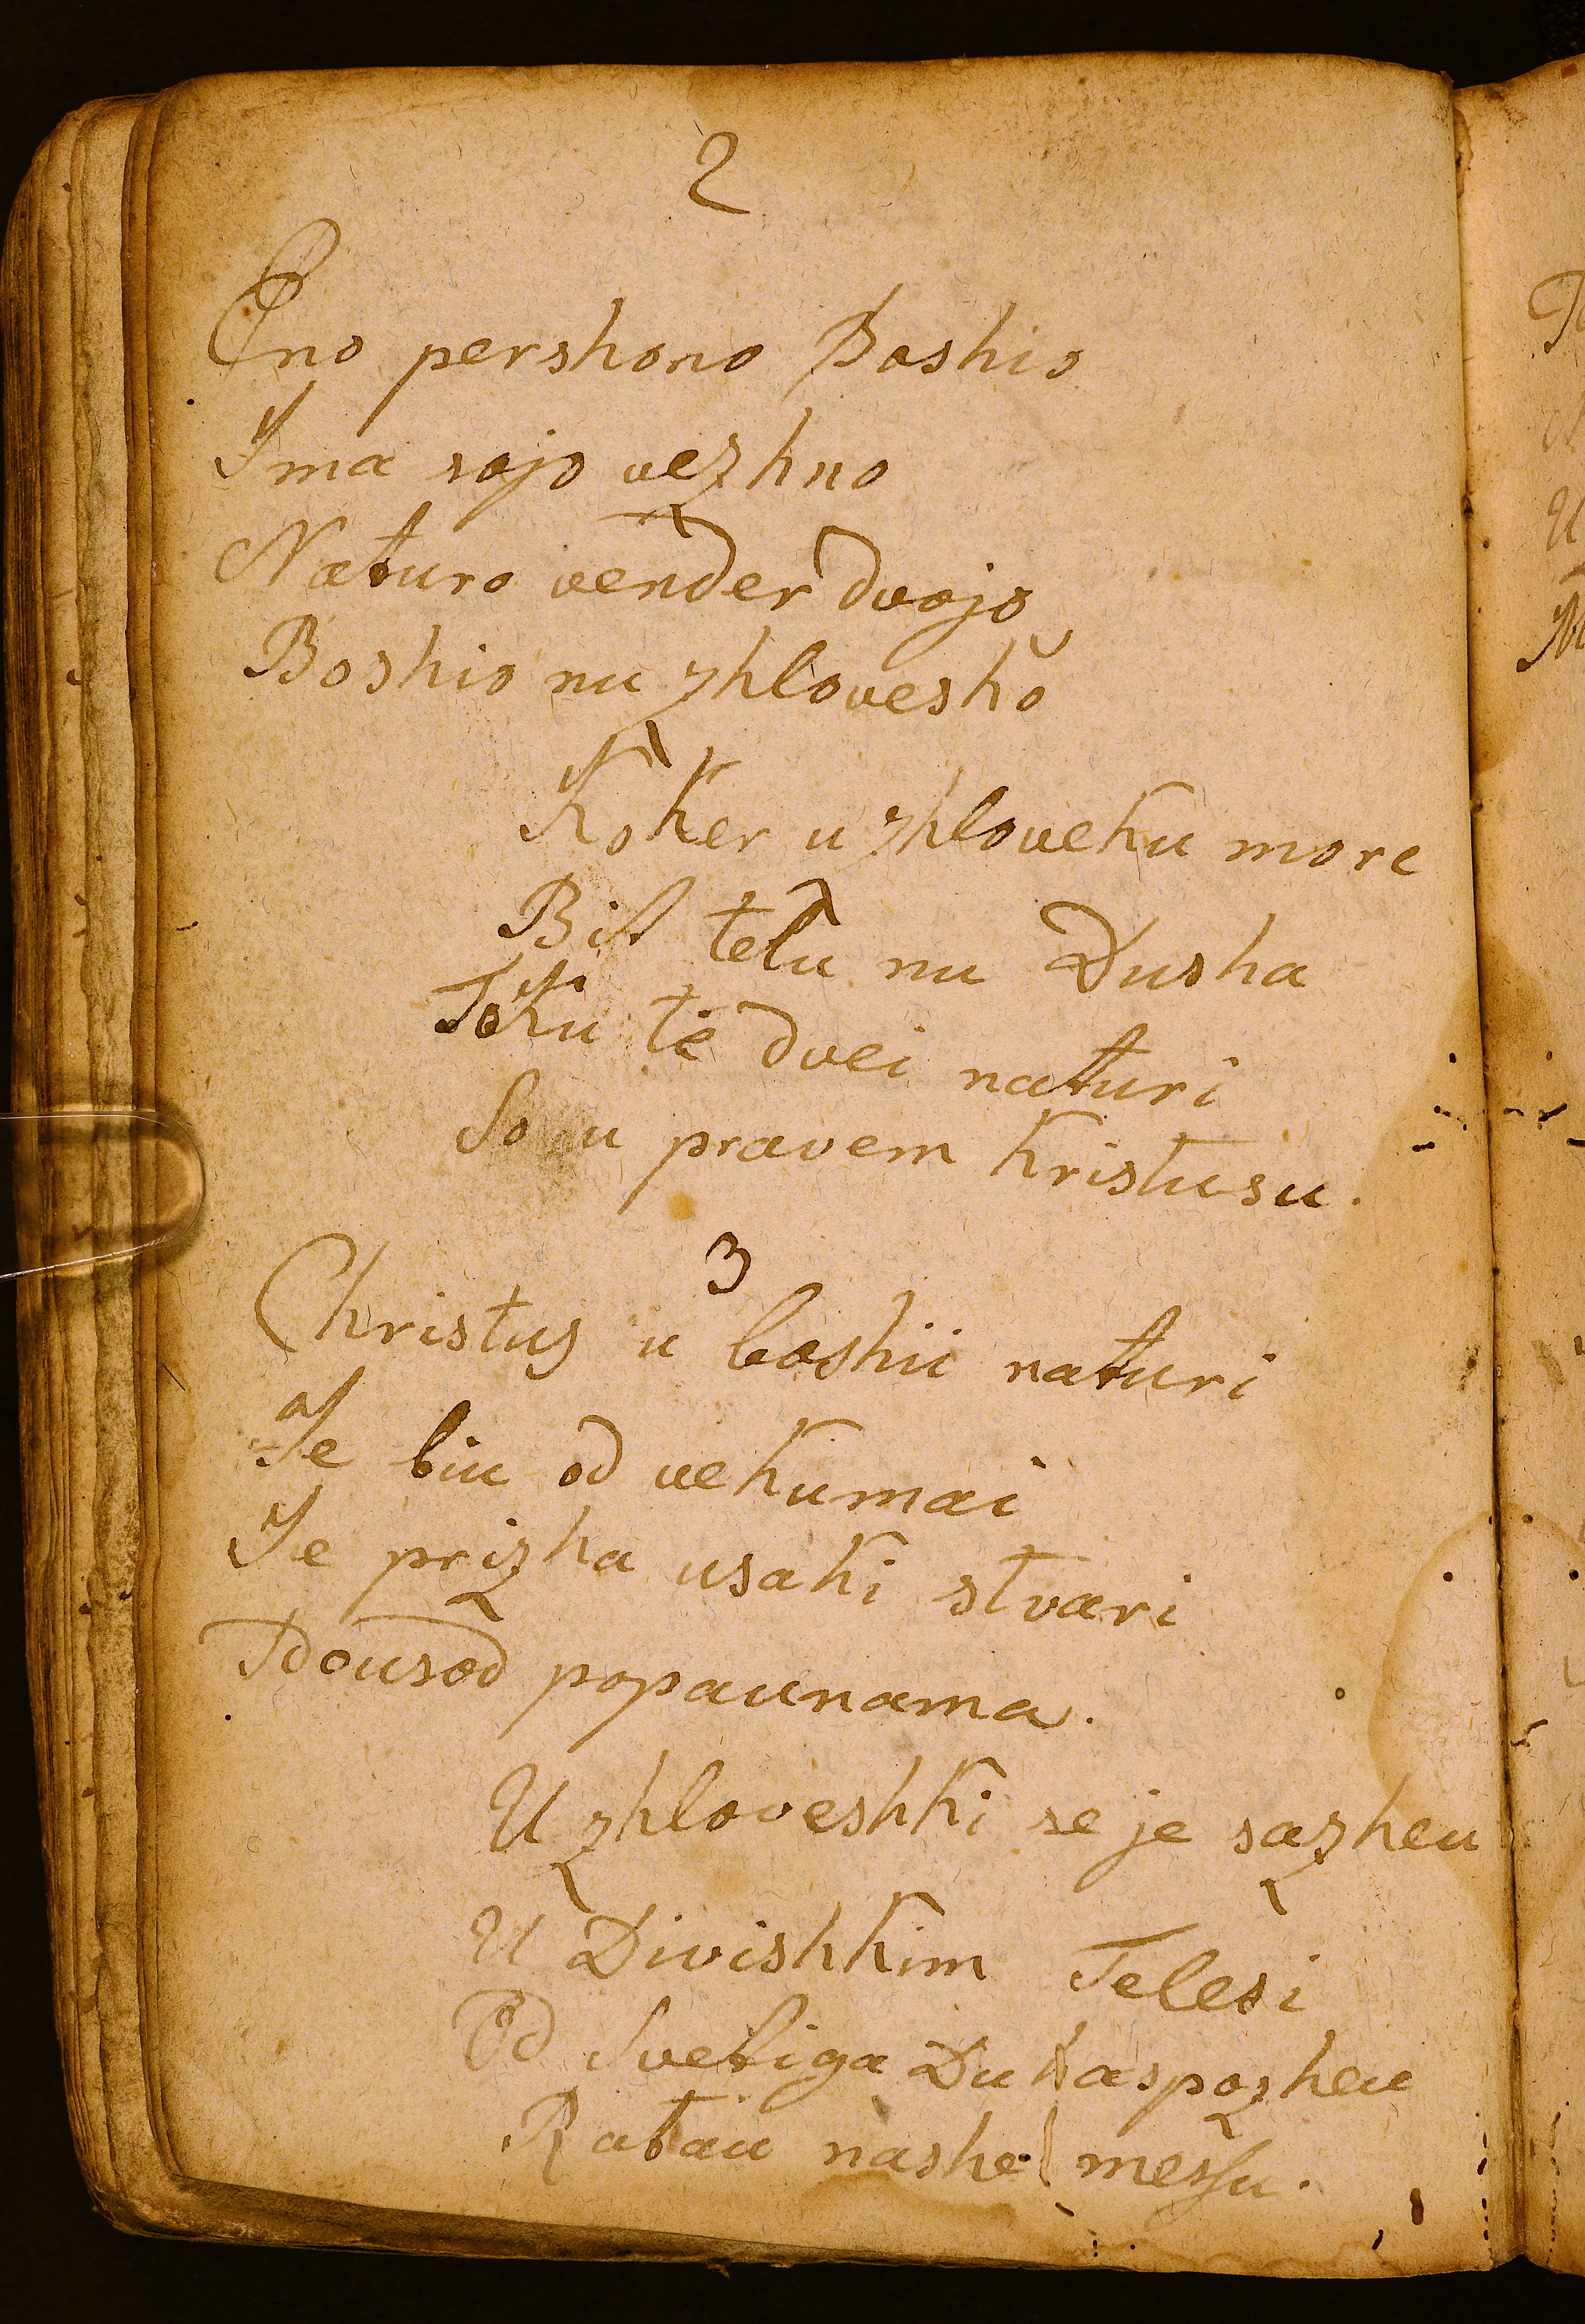 2
Eno pershono Boshio
Ima sojo vezhno
Naturo vender dvojo
Boshio nu zhloveshko
Koker u zhloveku more
Bit telu nu Dusha
Toku te dvei naturi
So u pravem Kristusu.
3
Christus u boshii naturi
Je biu od vekumai
Je prizha usaki stvari
Tdousod popaunama.
U zhloveshki se je sazheu
U Divishkim Telesi
Od Svetiga Duha spozheu
Ratau nashe messu.